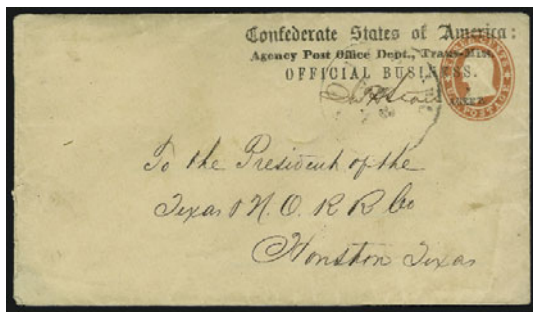 Confederate States of America:
Agency Post Office Dept., Trans-Miss.
OFFICIAL BUSINESS.
CLERK.
U.S. POSTAGE
To the President of the
Texas & N. O. R R Co
Houston Texas